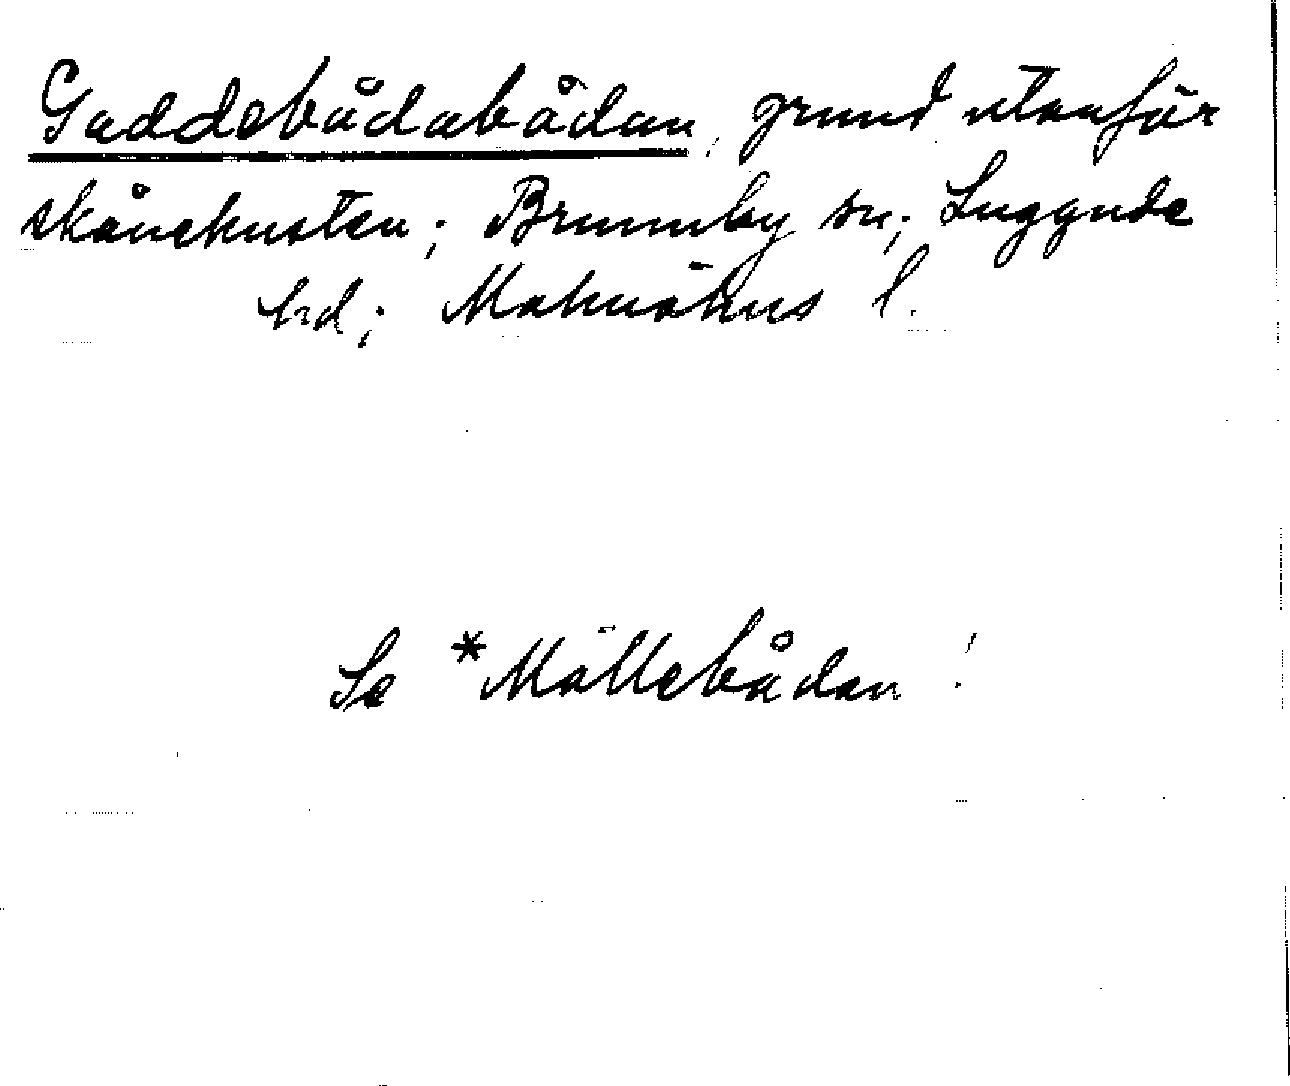 Gaddebådabådan, grund utanför
skånekusten; Brunnby sn; Luggude
hd; Malmöhus l.
Se *Möllebådan!